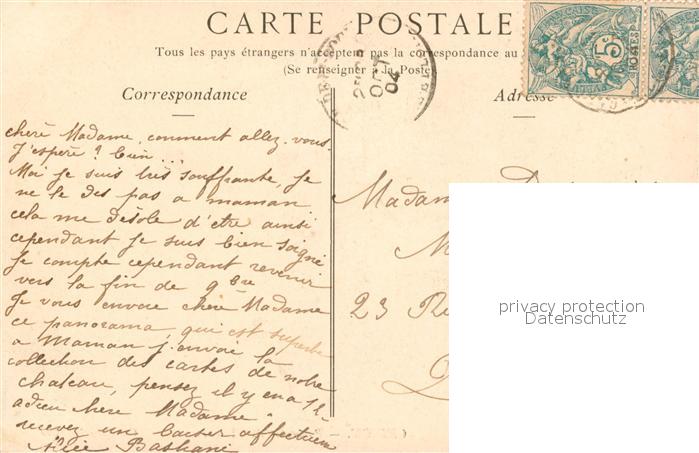 CARTE POSTALE
Tous les pays étrangers n'acceptent pas la correspondance au
(Se renseigner à la Poste)
Correspondance
Adresse
25 OCT 04
5c
POSTES
cherè Madame, comment allez-vous.
J'esperè? bien...
Moi je suis très souffrante, je
ne le dis pas a maman
cela me désole d'être ainsi
cependant je suis bien soigné
je compte cependant revenir
vers la fin de 9bre
Je vous envoie cherè Madame
ce panorama qui est superbe
a Maman j'envoie la
collection des cartes de notre
chateau, pensez il y en a 12
adieu chere Madame
recevez un baiser affectueux
Madame
23 R
privacy protection
Datenschutz